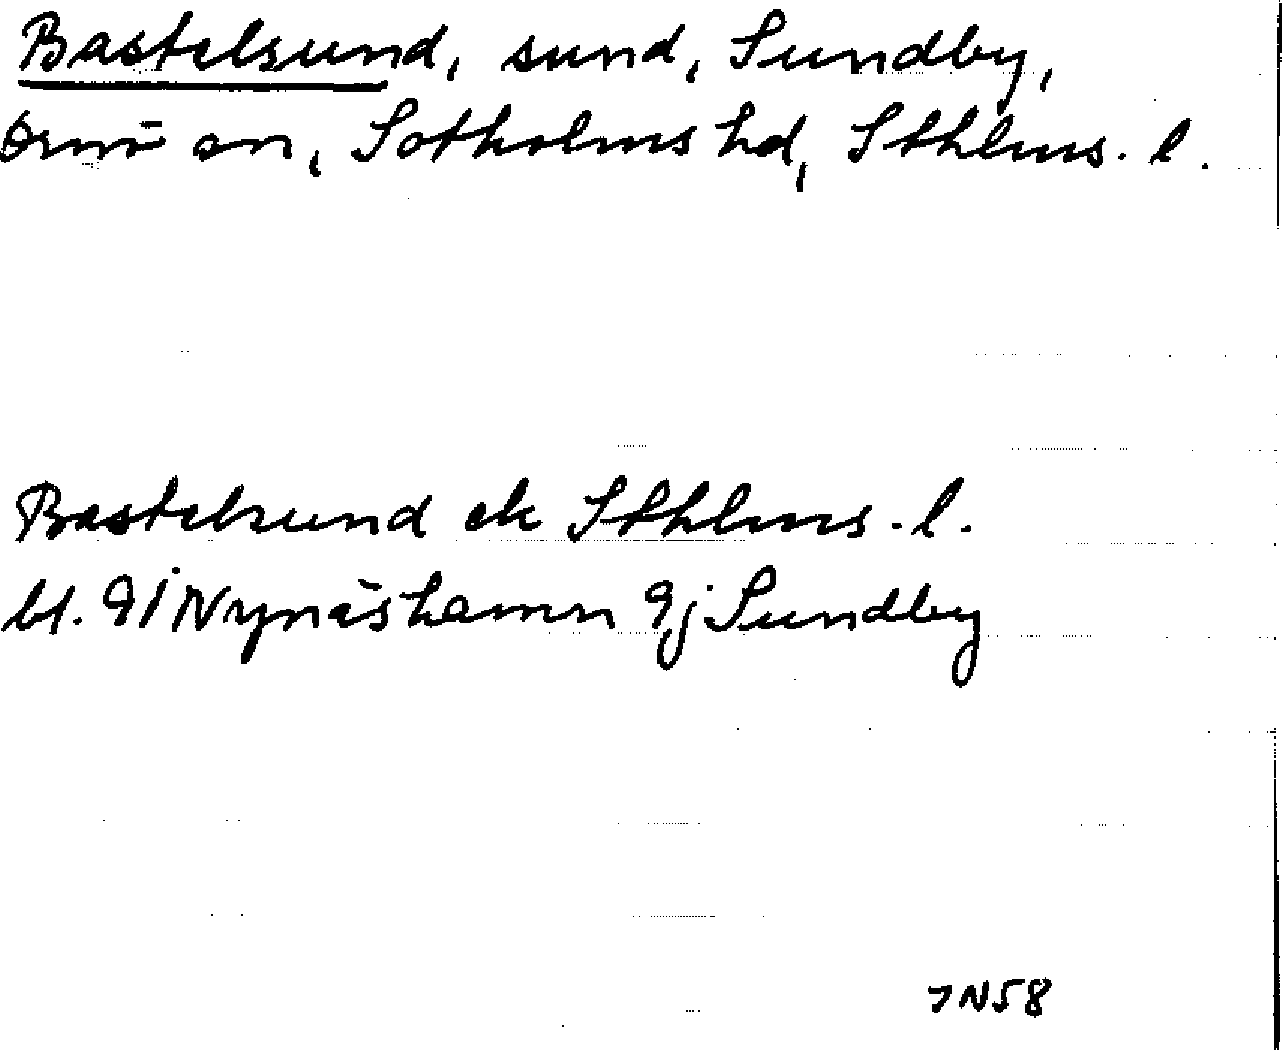 Bastelsund, sund, Sundby,
Ornö sn, Sotholms hd, Sthlms. l.
Bastelsund ek Sthlms. l.
bl. 91 Nynäshamn 9j Sundby
JN58